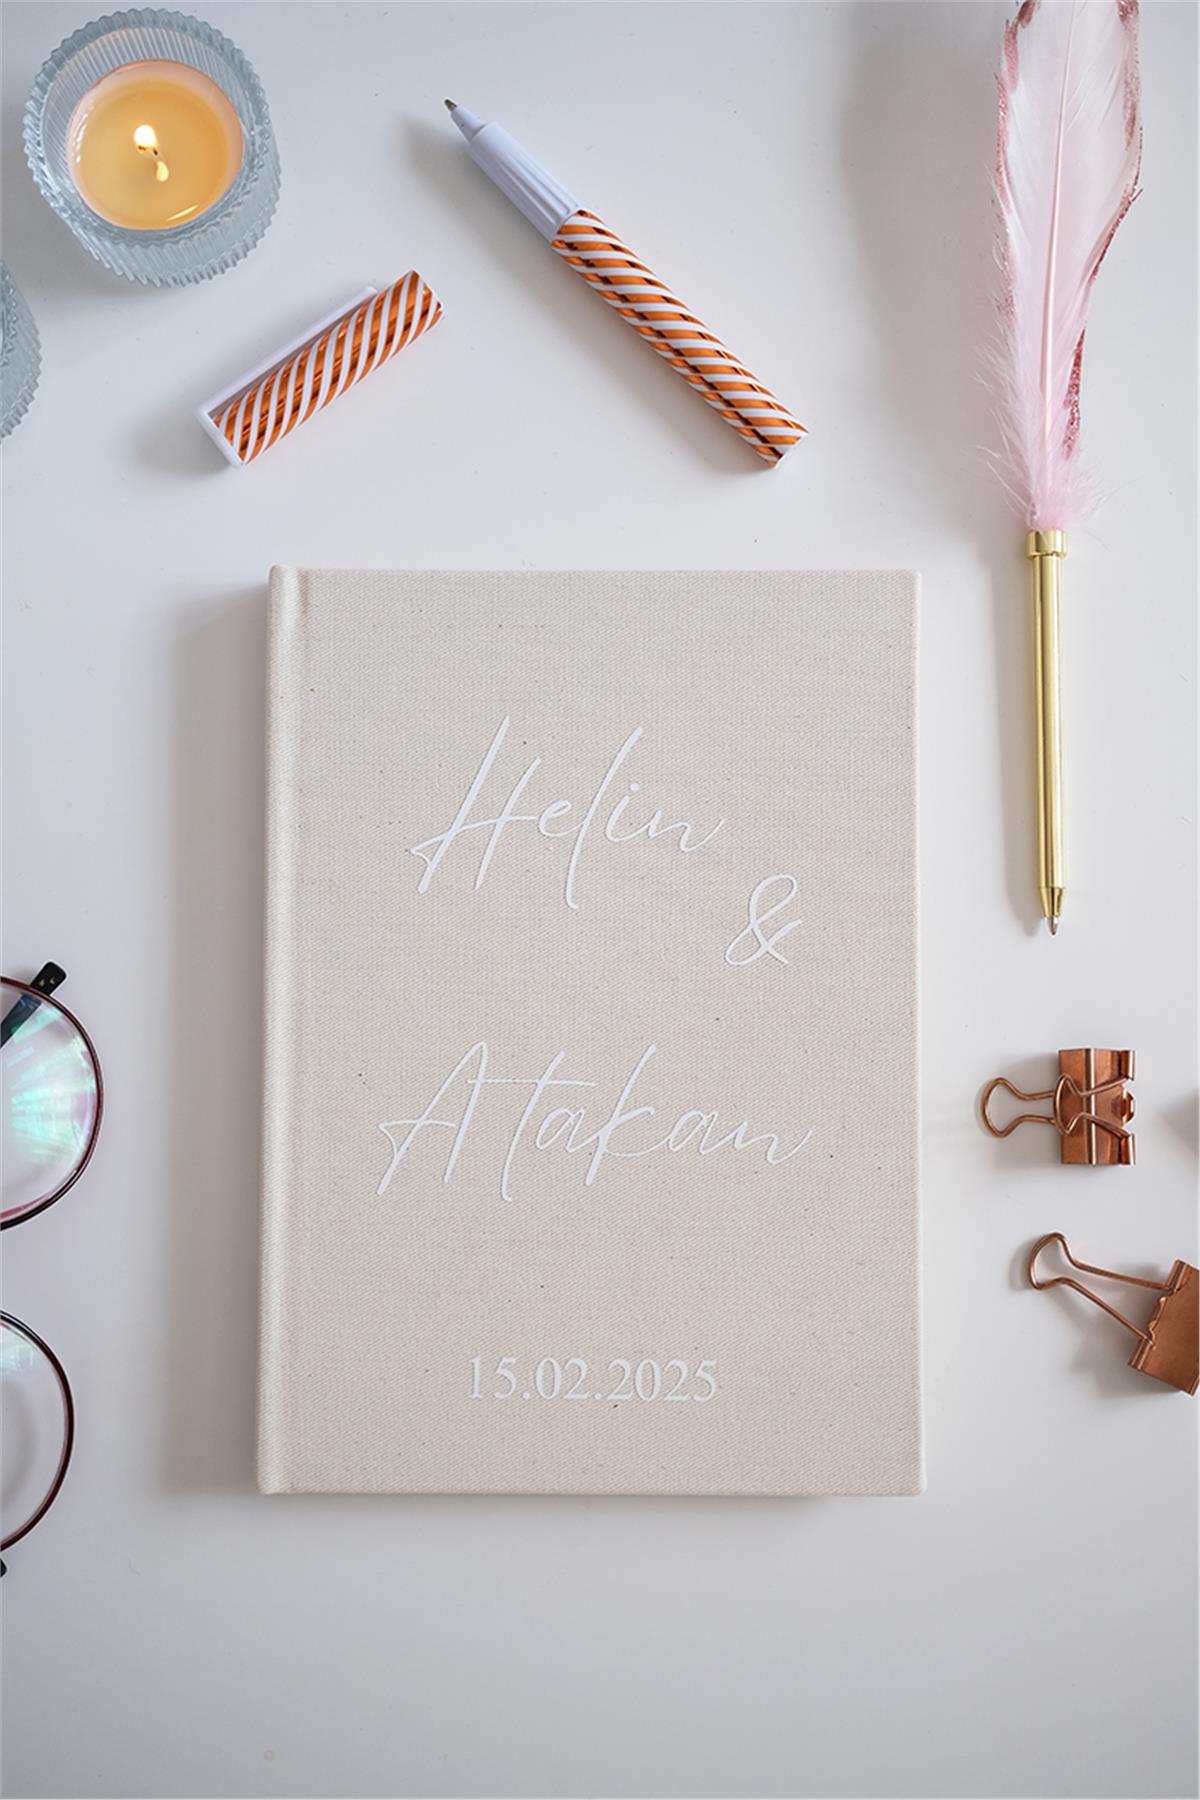 Helin
&
Atakan
15.02.2025